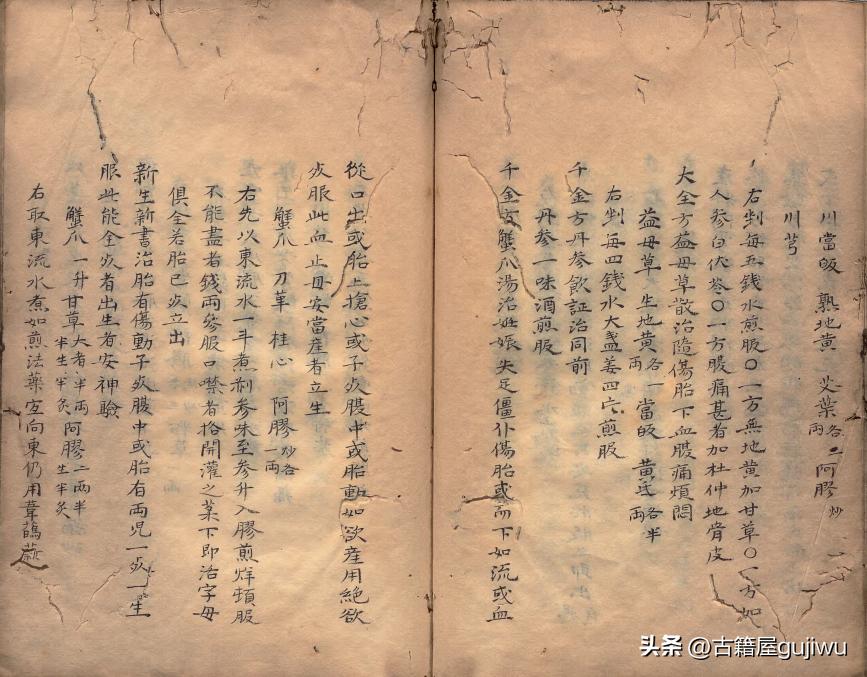 川當皈 熟地黃 艾葉各二兩 阿膠炒一
川芎
右剉每五錢水煎服〇一方無地黃加甘草〇一方加
人參白伏苓〇一方腹痛甚者加杜仲地骨皮
大全方益母草散治墮傷胎下血腹痛煩悶
益母草 生地黃各一兩 當皈 黃芪各半兩
右剉每四錢水大盞姜四片煎服
千金方丹參飲証治同前
丹參一味酒煎服
千金方蟹爪湯治妊娠失足僵仆傷胎或而下如流或血
從口出或胎上搶心或子死腹中或胎動如欲産用絕欲
死服此血止母安當産者立生
蟹爪 刀革 桂心 阿膠炒各一兩
右先以東流水一斗煮剂參味至參升入膠煎烊頓服
不能盡者錢兩參服口禁者挌開灌之葉下即活字母
俱全若胎已死立出
新生新書治胎有傷動子死腹中或胎有兩児一死一生
服此能全死者出生者安神驗
蟹爪一升 甘草大者半兩半生半炙 阿膠二兩半生半炙
右取東流水煮如煎法藥室向東仍用葦
头条 @古籍屋gujiwu